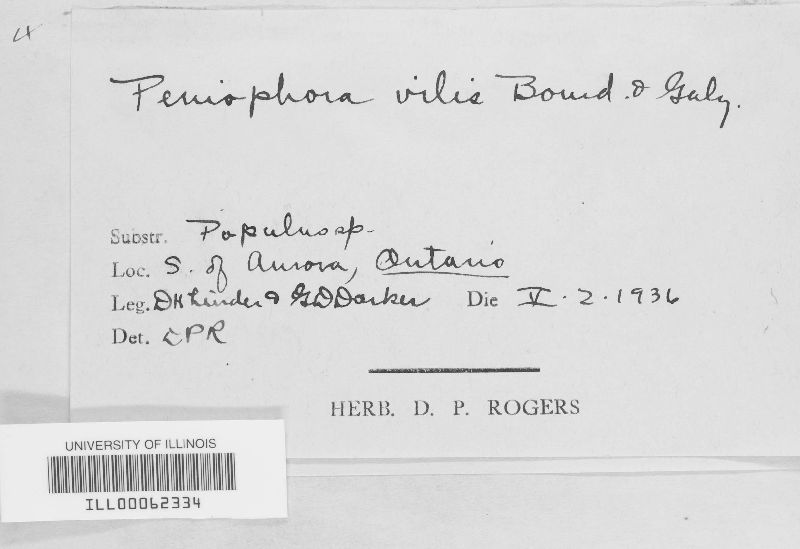 Peniophora vilis Bourd. & Galz.
Substr. Populus sp.
Loc. S. of Aurora, Ontario
Leg. DH Linder & GD Darker Die V. 2. 1936
Det. DPR
HERB. D. P. ROGERS
UNIVERSITY OF ILLINOIS
ILL00062334